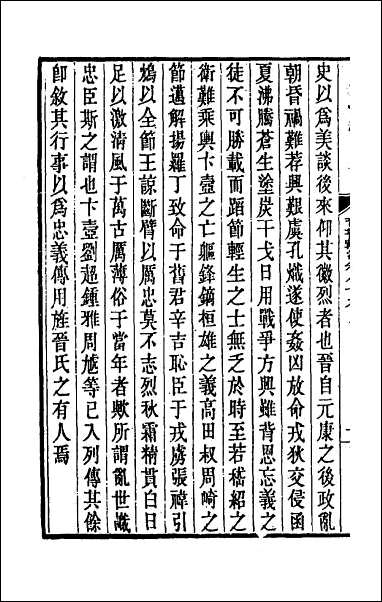 史以爲美談後來仰其徽烈者也晉自元康之後政亂
朝昏禍難荐興艱虞孔熾遂使姦凶放命戎狄交侵函
夏沸騰蒼生塗炭干戈日用戰爭方興雖背恩忘義之
徒不可勝載而蹈節輕生之士無乏於時至若嵇紹之
衛難乘輿卞壼之亡軀鋒鏑桓雄之義高田叔周崎之
節邁解揚羅丁致命于舊君辛吉恥臣于戎虜張禕引
鴆以全節王諒斷臂以厲忠莫不志烈秋霜精貫白日
足以激清風于萬古厲薄俗于當年者歟所謂亂世識
忠臣斯之謂也卞壼劉超鍾雅周虓等已入列傳其餘
卽敘其行事以爲忠義傳用旌晉氏之有人焉